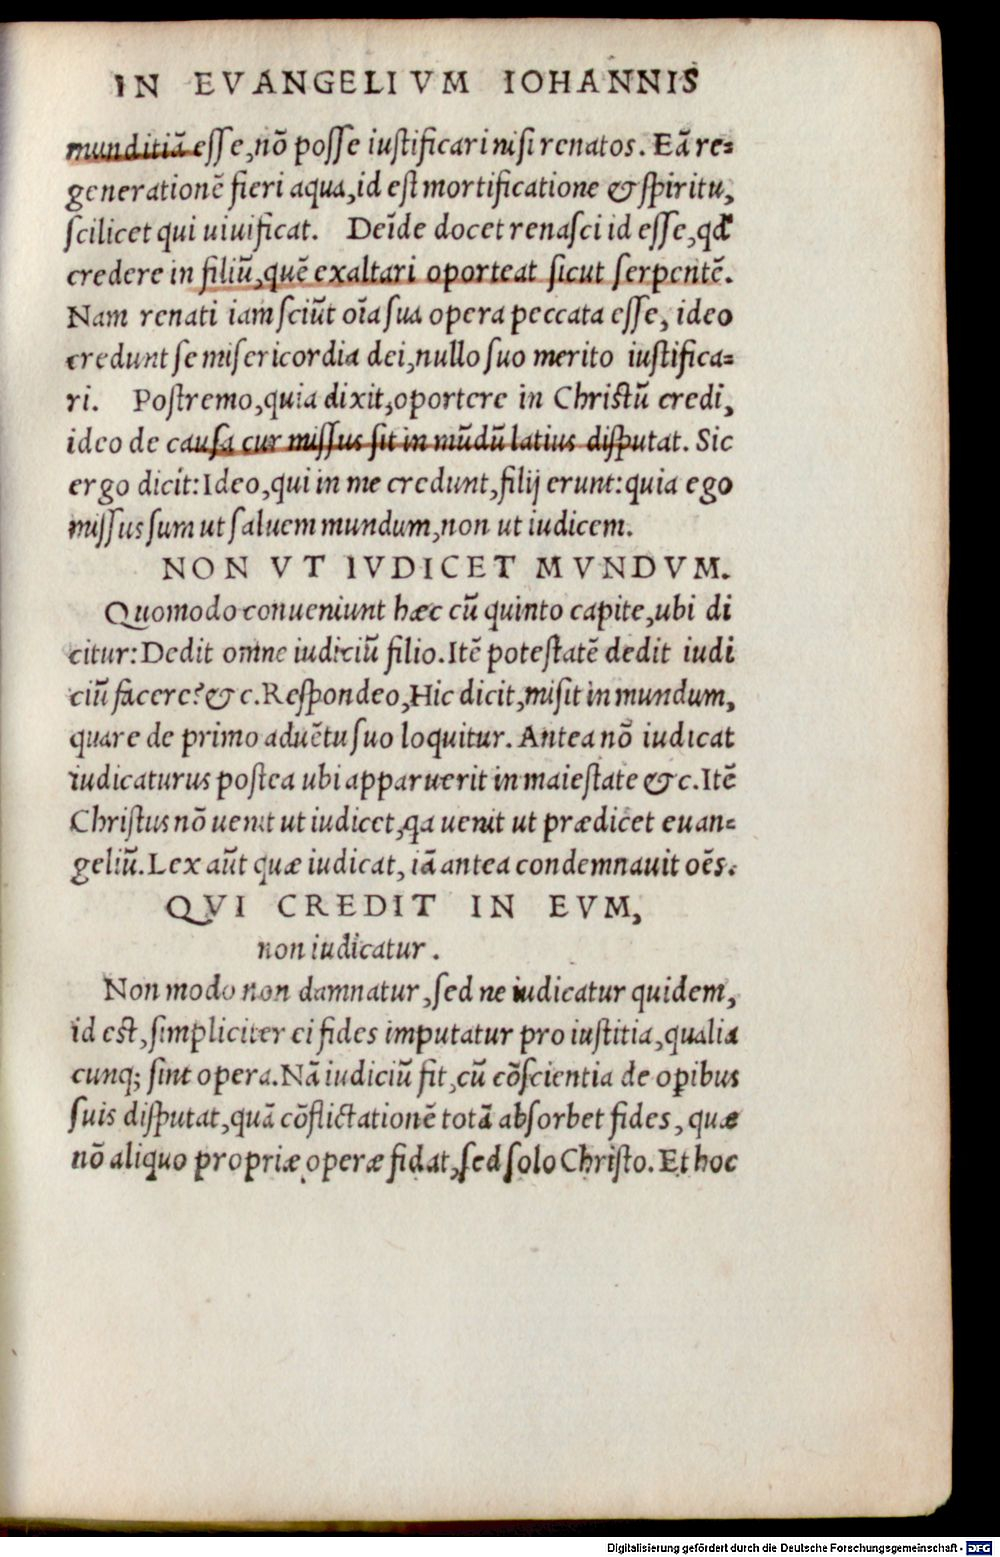 IN EVANGELIVM IOHANNIS
munditiā esse, nō posse iustificari nisi renatos. Eā re=
generationē fieri aqua, id est mortificatione & spiritu,
scilicet qui uiuificat. Deīde docet renasci id esse, qđ
credere in filiū, quē exaltari oporteat sicut serpentē.
Nam renati iam sciūt oīa sua opera peccata esse, ideo
credunt se misericordia dei, nullo suo merito iustifica=
ri. Postremo, quia dixit, oportere in Christū credi,
ideo de causa cur missus sit in mūdū latius disputat. Sic
ergo dicit: Ideo, qui in me credunt, filij erunt: quia ego
missus sum ut saluem mundum, non ut iudicem.
NON VT IVDICET MVNDVM.
Quomodo conueniunt hæc cū quinto capite, ubi di
citur: Dedit omne iudiciū filio. Itē potestatē dedit iudi
ciū facere? &c. Respondeo, Hic dicit, misit in mundum,
quare de primo aduētu suo loquitur. Antea nō iudicat
iudicaturus postea ubi apparuerit in maiestate &c. Itē
Christus nō uenit ut iudicet, qa uenit ut prædicet euan=
geliū. Lex aūt quæ iudicat, iā antea condemnauit oēs.
QVI CREDIT IN EVM,
non iudicatur.
Non modo non damnatur, sed ne iudicatur quidem,
id est, simpliciter ei fides imputatur pro iustitia, qualia
cunq; sint opera. Nā iudiciū fit, cū cōscientia de oꝑibus
suis disputat, quā cōflictationē totā absorbet fides, quæ
nō aliquo propriæ operæ fidat, sed solo Christo. Et hoc
Digitalisierung gefördert durch die Deutsche Forschungsgemeinschaft - DFG